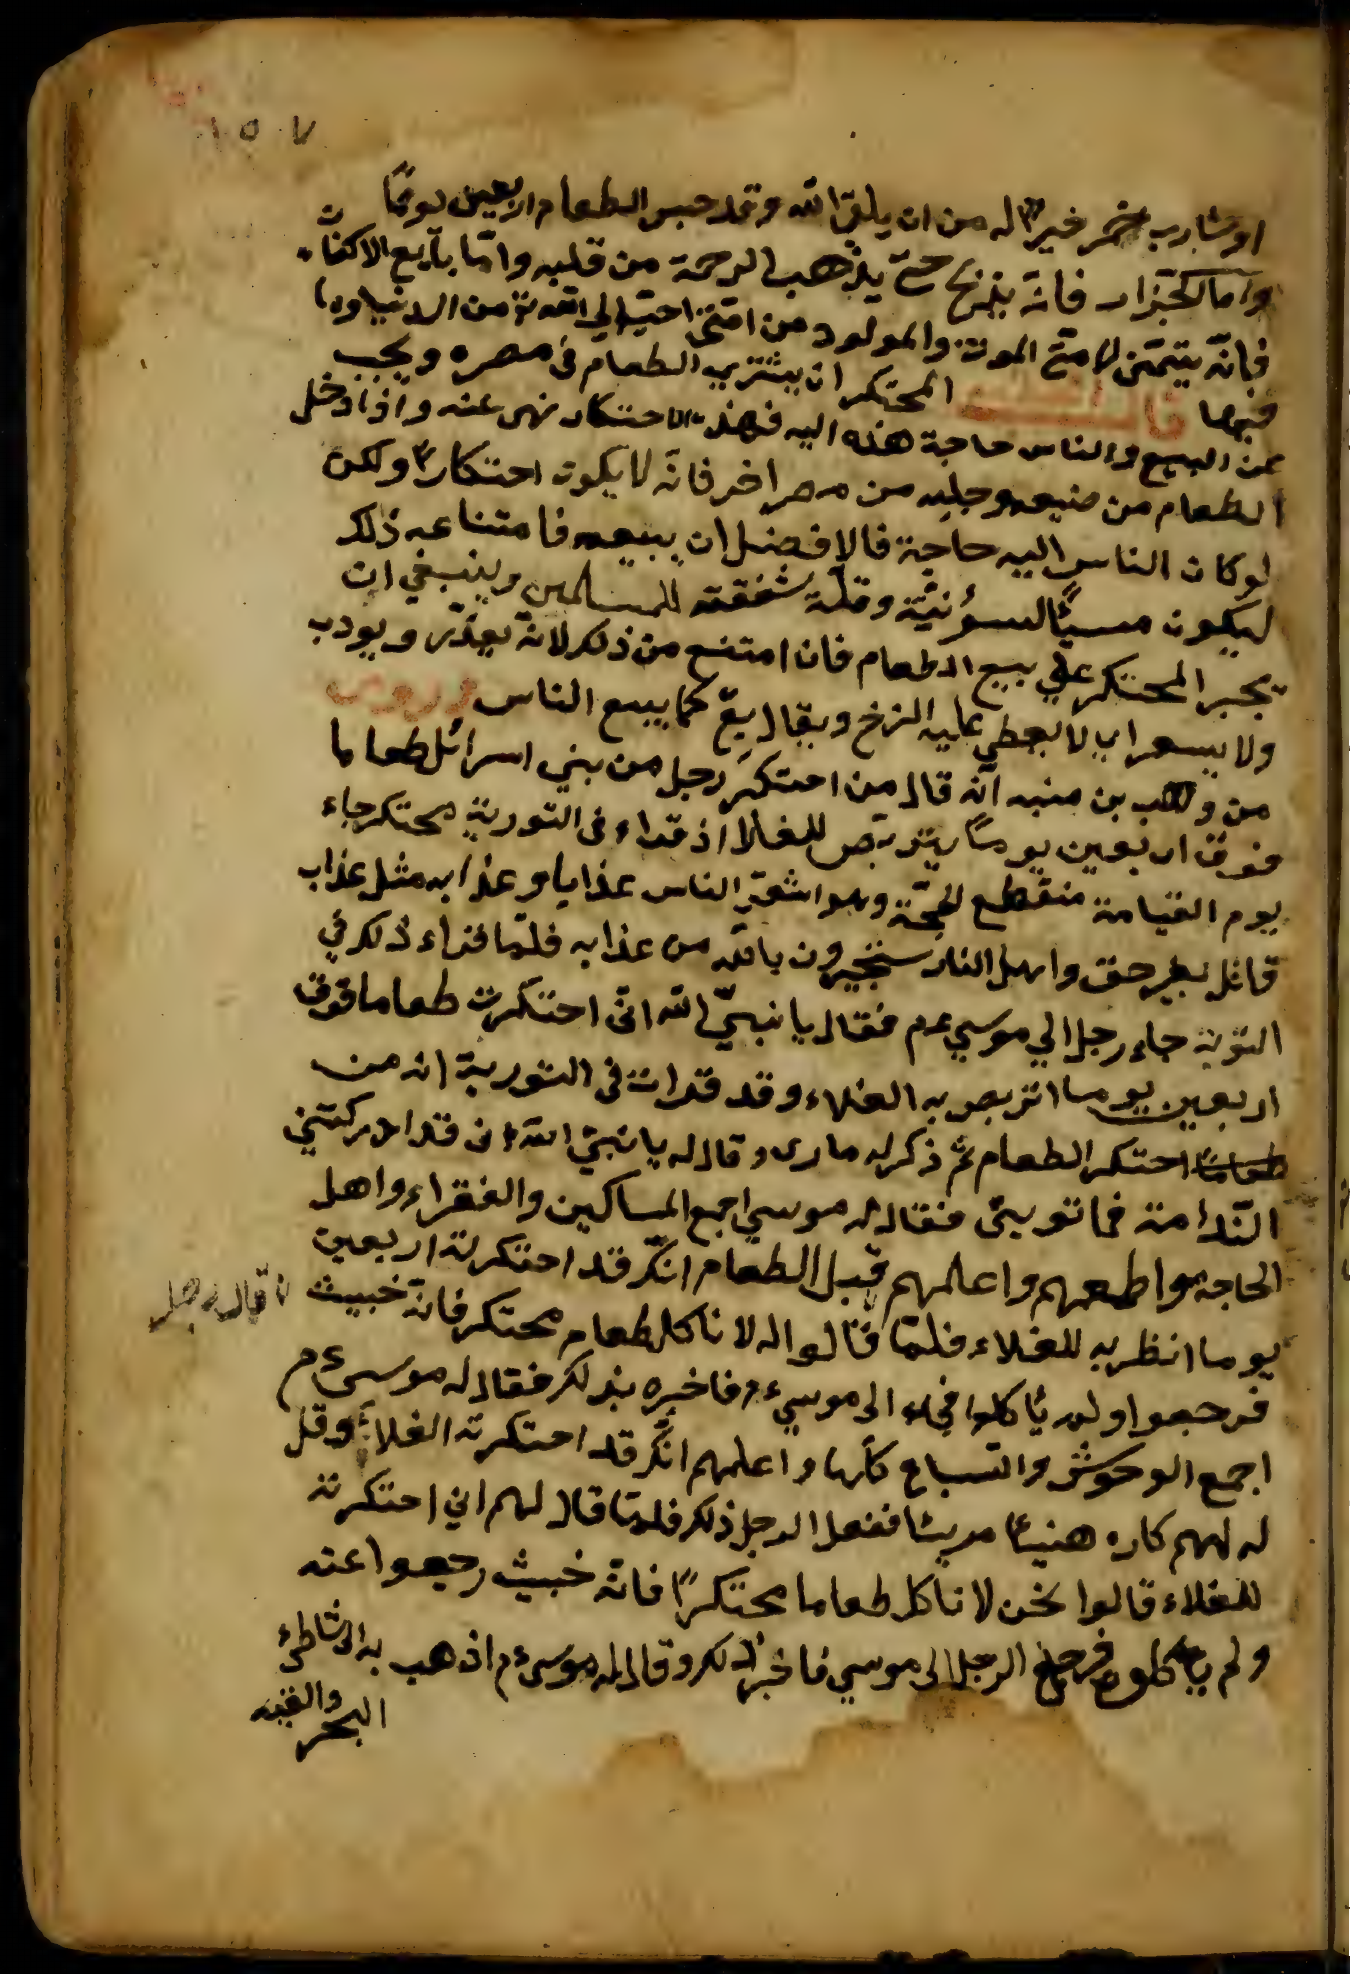 ١٥٧
او شارب خمر خيرا له من ان يلقي الله وقد حبس الطعام اربعين يومًا
واما الجزار فانه يذبح حتى يذهب الرحمة من قلبه وامّا بايع الاكفان
فانّه يتمنى لامتي الموت والمولود من امتي احبّ الي الله من الدنيا وما
فيها قال الفقيه المحتكر ان يشتري الطعام في مصره ويحبس
عن البيع والناس حاجة هذه اليه فهذا الاحتكار نهى عنه واذا دخل
الطعام من ضيعه وجلبه من مصر اخر فانه لا يكون احتكارًا ولكن
لو كان الناس اليه حاجة فالافضل ان يبيعه فامتناعه ذلك
ليكون مسيئًا لسوء نيته وقلة شفقته للمسلمين وينبغي ان
يجبر المحتكر علي بيع الطعام فان امتنع من ذلك لانه يعذر ويودب
ولا يسعر اي لا يعطي عليه النرخ ويقال بع كما يبيع الناس وروى
من وهب بن منبه انه قال من احتكر رجل من بني اسرائل طعاما
فوق اربعين يومًا يتربّص للغلا اذ قداء في التورية محتكر جاء
يوم القيامة منقطع الحجّة وهو اشقى الناس عذابا وعذابه مثل عذاب
قاتل بغير حق واهل النار ستجيرون بالله من عذابه فلمّا قراء ذلك في
التورية جاء رجل الي موسي عم فقال يا نبيّ الله انّي احتكرت طعاما فوق
اربعين يوما اتربص به الغلاء وقد قرات في التورية انه من
طعامًا احتكر الطعام ثم ذكر له ما راى وقال له يا نبيّ الله ان قد ادركتني
النّدامة فما توبتى فقال له موسي اجمع المساكين والفقراء واهل
الحاجة واطعمهم واعلمهم قبل الطعام انّك قد احتكرته اربعين
يوما انظر به للغلاء فلمّا قالوا له لا ناكل طعام محتكر فانه خبيث
قال رجل
فرجعوا ولم ياكلوا فجاء الى موسي ءم فاخبره بذلك فقال له موسى ءم
اجمع الوحوش والسباع كلّها واعلمهم انّك قد احتكرته الغلاء وقل
له لهم كلوه هنيئا مريئا ففعل الرجل ذلك فلمّا قال لهم اني احتكرته
للغلاء قالوا نحن لا ناكل طعاما محتكرًا فانه خبيث رجعوا عنه
ولم ياكلوه فرجع الرجل الى موسي فاخبر ذلك وقال له موسى ءم اذهب به الى شاطئ
البحر والقيه